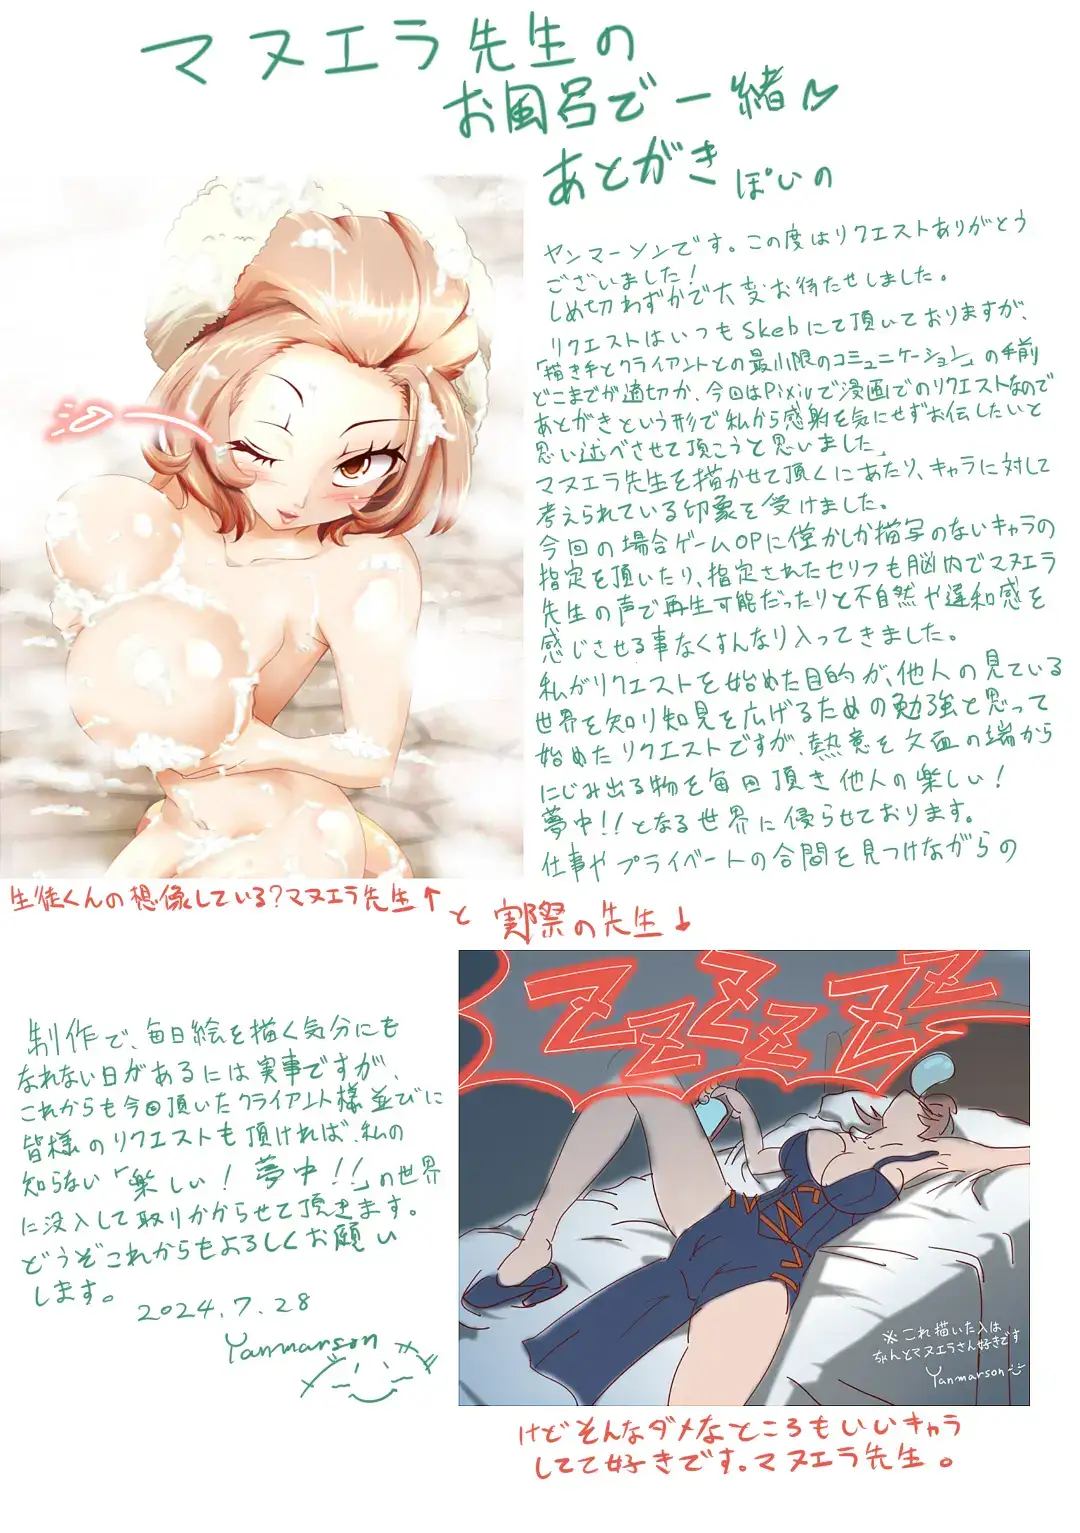 マヌエラ先生の
お風呂で一緒♪
あとがきぽいの
ヤンマーソンです。この度はリクエストありがとう
ございました!
しめ切わずかで大変お待たせしました。
リクエストはいつもSkebにて頂いておりますが、
「描き手とクライアントとの最小限のコミュニケーション」の手前
どこまでが適切か、今回はPixivで漫画でのリクエストなので
あとがきという形で私から感謝を気にせずお伝したいと
思い述べさせて頂こうと思いました」
マヌエラ先生を描かせて頂くにあたり、キャラに対して
考えられている印象を受けました。
今回の場合ゲームOPに僅かしか描写のないキャラの
指定を頂いたり、指定されたセリフも脳内でマヌエラ
先生の声で再生可能だったりと不自然や違和感を
感じさせる事なくすんなり入ってきました。
私がリクエストを始めた目的が、他人の見ている
世界を知り知見を広げるための勉強と思って
始めたリクエストですが、熱意を文面の端から
にじみ出る物を毎回頂き他人の楽しい!
夢中!!となる世界に浸らせております。
仕事やプライベートの合間を見つけながらの
生徒くんの想像している?マヌエラ先生↑
と 実際の先生↓
制作で、毎日絵を描く気分にも
なれない日があるには実事ですが、
これからも今回頂いたクライアント様並びに
皆様のリクエストも頂ければ、私の
知らない「楽しい!夢中!!」の世界
に没入して取りかからせて頂きます。
どうぞこれからもよろしくお願い
します。
2024.7.28
Yanmarson
ZZZZZZ
※これ描いた人は
ちゃんとマヌエラさん好きです
Yanmarson
けどそんなダメなところもいいキャラ
してて好きです。マヌエラ先生。